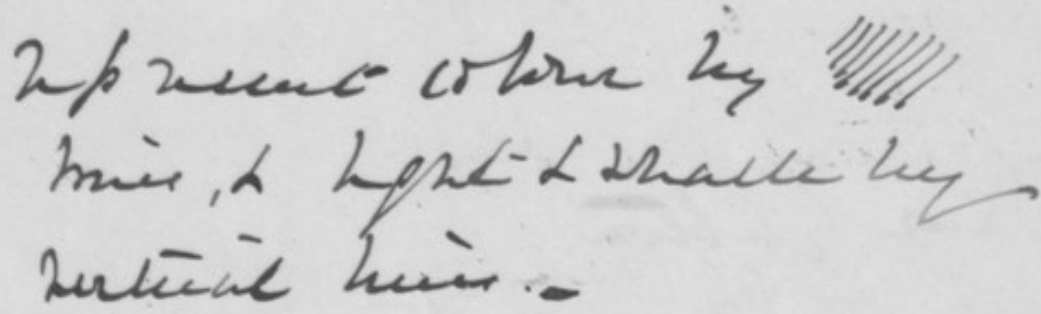 represent colour by
lines, & light & shade by
vertical lines. -